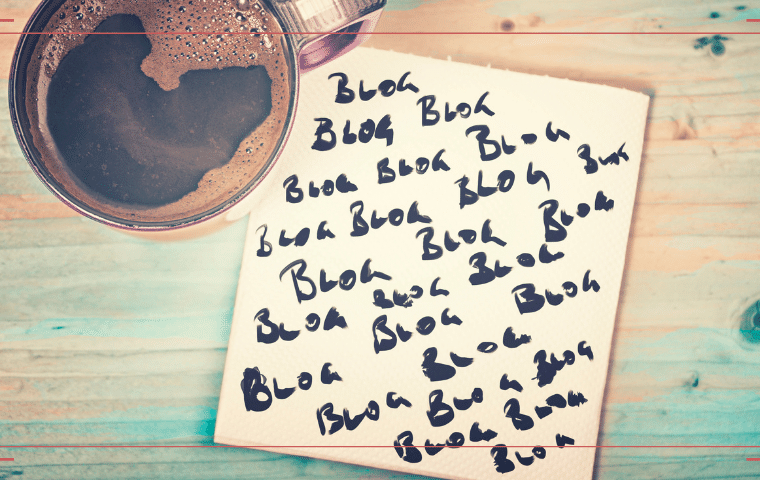 BLOG
BLOG BLOG
BLOG BLOG BLOG BLOG
BLOG BLOG BLOG
BLOG BLOG BLOG
BLOG BLOG BLOG
BLOG BLOG BLOG
BLOG BLOG
BLOG BLOG BLOG
BLOG BLOG